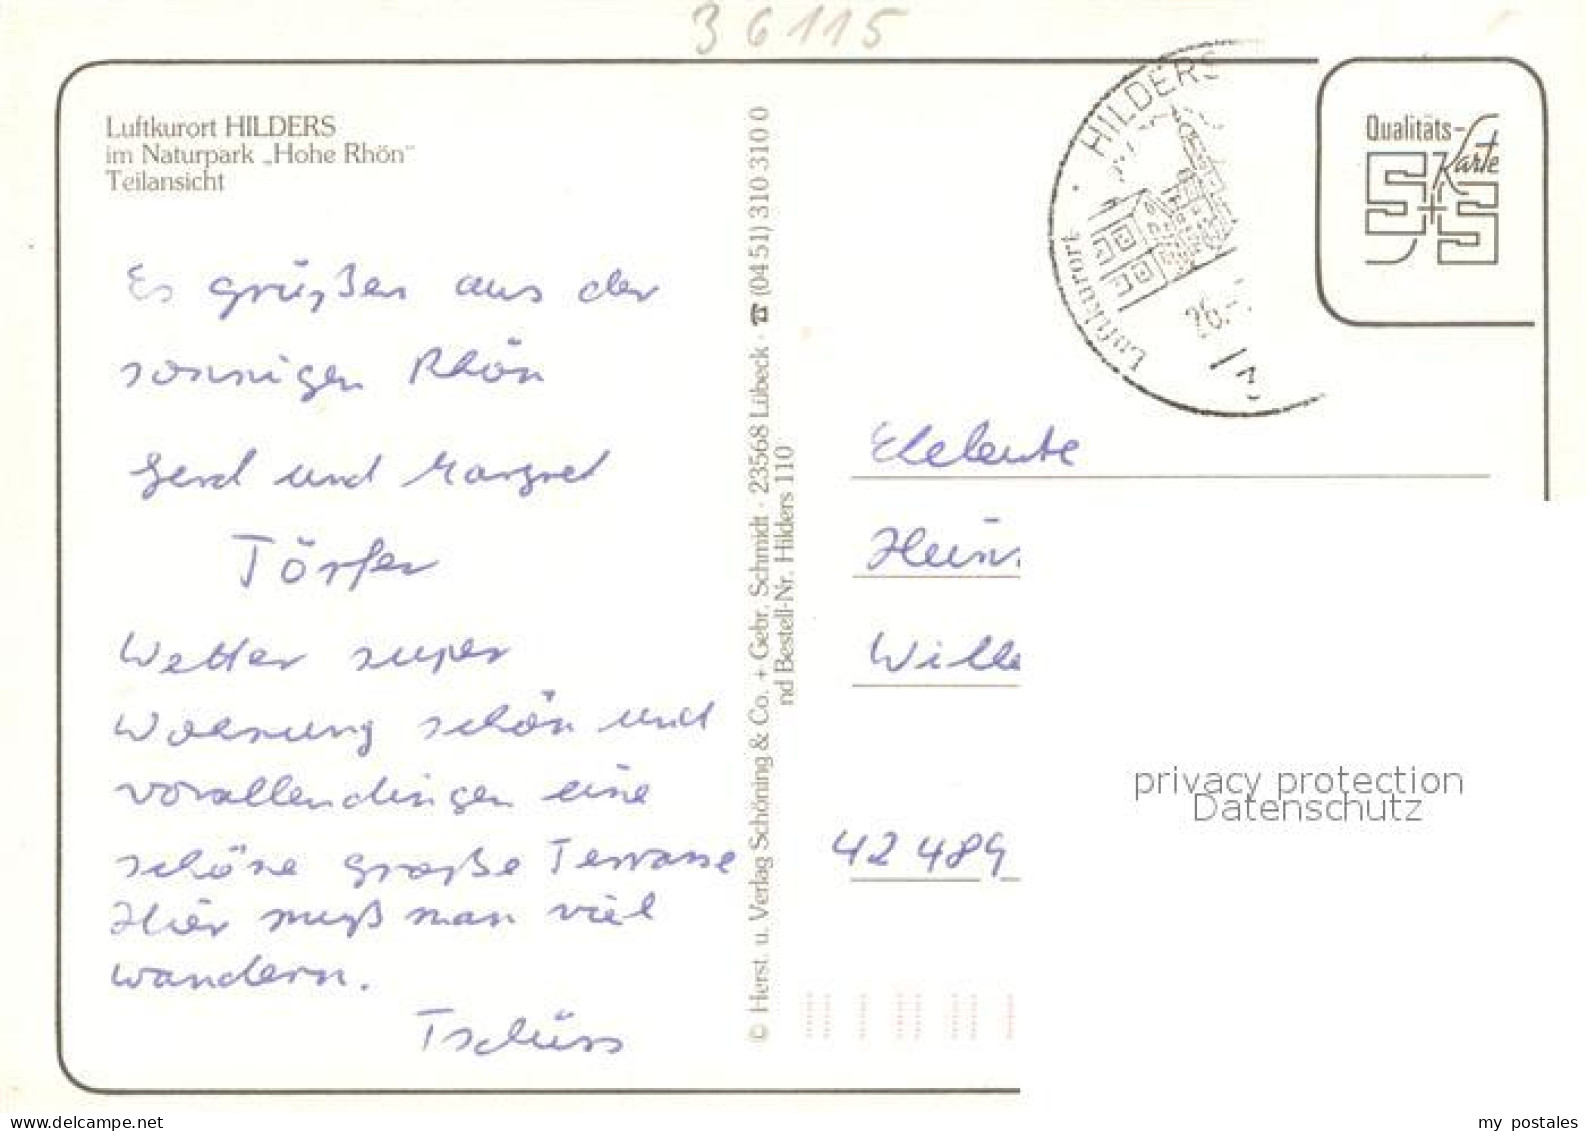 36115
Luftkurort HILDERS
im Naturpark „Hohe Rhön"
Teilansicht
Es grüßen aus der
sonnigen Rhön
Gerd und Margret
Törfer
Wetter super
Wohnung schön und
vorallendingen eine
schöne große Terrasse
Hier muß man viel
wandern.
Tschüss
© Herst. u. Verlag Schöning & Co. + Gebr. Schmidt · 23568 Lübeck · ☎ (04 51) 310 310 0
nd Bestell-Nr. Hilders 110
HILDERS
Luftkurort
26.-
Qualitäts-
Karte
S+S
Eheleute
Wille
42489
privacy protection
Datenschutz
delcampe.net
my postales